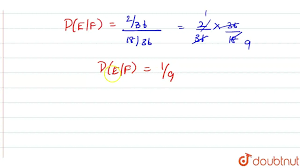 P(E/F) = 2/36 / 18/36 = 2/36 × 36/18 1 9
P(E/F) = 1/9
doubtnut